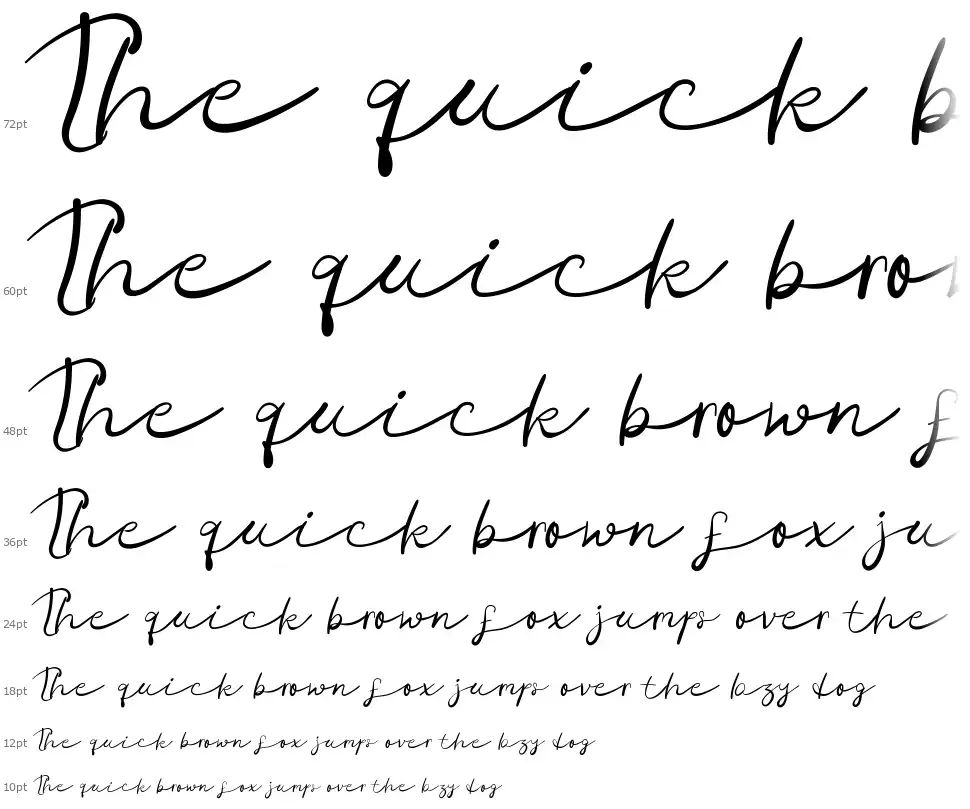 72pt The quick b
60pt The quick bro
48pt The quick brown f
36pt The quick brown fox ju
24pt The quick brown fox jumps over the
18pt The quick brown fox jumps over the lazy dog
12pt The quick brown fox jumps over the lazy dog
10pt The quick brown fox jumps over the lazy dog